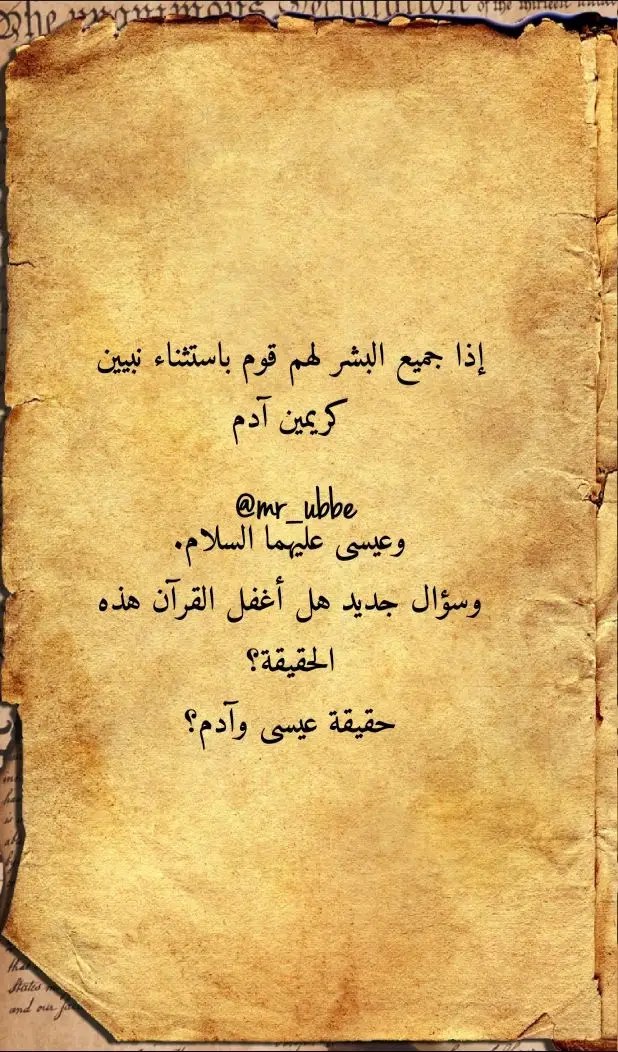 The unanimous Declaration of the thirteen united
إذا جميع البشر لهم قوم باستثناء نبيين
كريمين آدم
@mr_ubbe
وعيسى عليهما السلام.
وسؤال جديد هل أغفل القرآن هذه
الحقيقة؟
حقيقة عيسى وآدم؟
that
States
and our